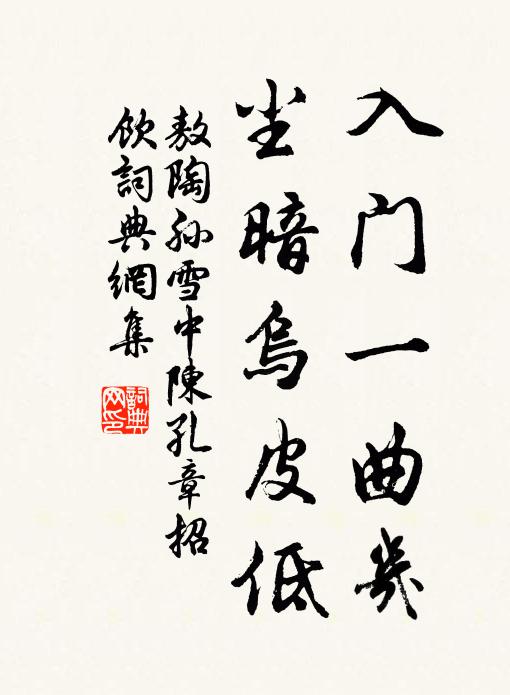 入门一曲几
尘暗乌皮低
敖陶孙雪中陳孔章招
飲詞典網集
詞典
网印